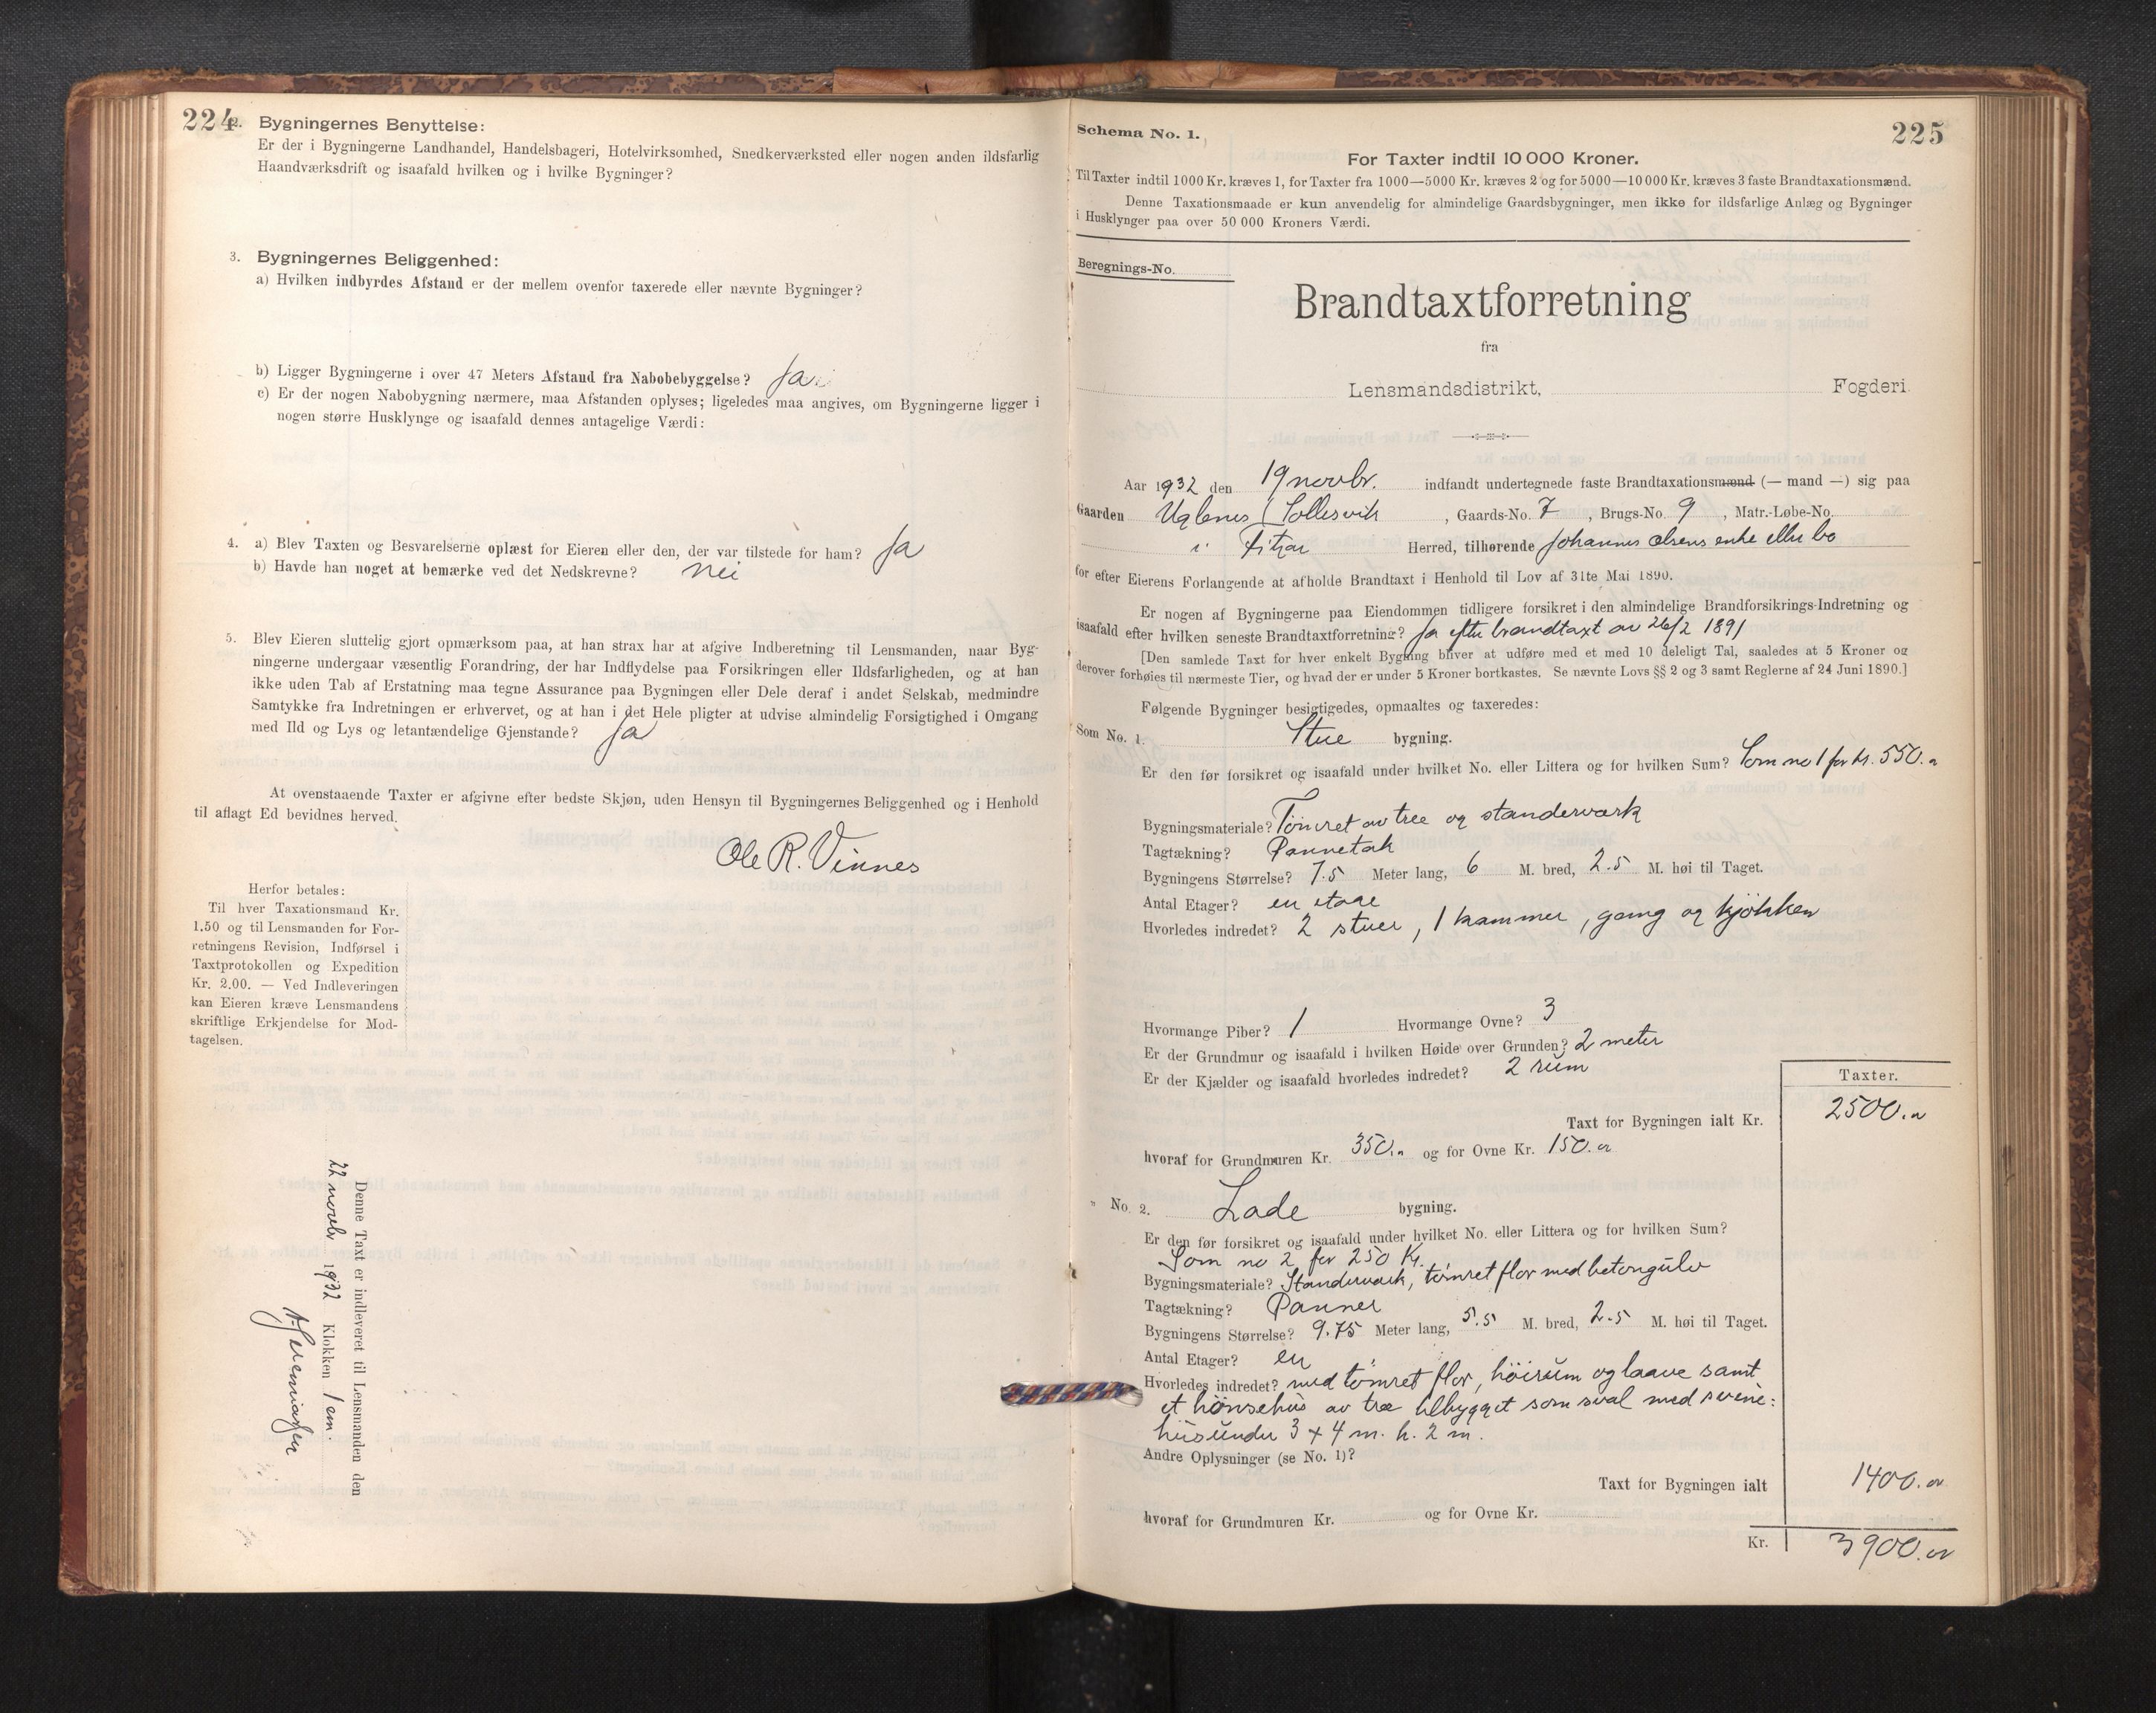 224
2. Bygningernes Benyttelse:
Er der i Bygningerne Landhandel, Handelsbageri, Hotelvirksomhed, Snedkerværksted eller nogen anden ildsfarlig
Haandværksdrift og isaafald hvilken og i hvilke Bygninger?
3. Bygningernes Beliggenhed:
a) Hvilken indbyrdes Afstand er der mellem ovenfor taxerede eller nævnte Bygninger?
b) Ligger Bygningerne i over 47 Meters Afstand fra Nabobebyggelse? Ja
c) Er der nogen Nabobygning nærmere, maa Afstanden oplyses; ligeledes maa angives, om Bygningerne ligger i
nogen større Husklynge og isaafald dennes antagelige Værdi:
4. a) Blev Taxten og Besvarelserne oplæst for Eieren eller den, der var tilstede for ham? Ja
b) Havde han noget at bemærke ved det Nedskrevne? Nei
5. Blev Eieren sluttelig gjort opmærksom paa, at han strax har at afgive Indberetning til Lensmanden, naar Byg-
ningerne undergaar væsentlig Forandring, der har Indflydelse paa Forsikringen eller Ildsfarligheden, og at han
ikke uden Tab af Erstatning maa tegne Assurance paa Bygningen eller Dele deraf i andet Selskab, medmindre
Samtykke fra Indretningen er erhvervet, og at han i det Hele pligter at udvise almindelig Forsigtighed i Omgang
med Ild og Lys og letantændelige Gjenstande? Ja
At ovenstaaende Taxter er afgivne efter bedste Skjøn, uden Hensyn til Bygningernes Beliggenhed og i Henhold
til aflagt Ed bevidnes herved.
Ole R. Vinnes
Herfor betales:
Til hver Taxationsmand Kr.
1.50 og til Lensmanden for For-
retningens Revision, Indførsel i
Taxtprotokollen og Expedition
Kr. 2.00. — Ved Indleveringen
kan Eieren kræve Lensmandens
skriftlige Erkjendelse for Mod-
tagelsen.
Denne Taxt er indleveret til Lensmanden den
22 novbr 1932 Klokken 1 em.
225
Schema No. 1.
For Taxter indtil 10 000 Kroner.
Til Taxter indtil 1000 Kr. kræves 1, for Taxter fra 1000—5000 Kr. kræves 2 og for 5000—10 000 Kr. kræves 3 faste Brandtaxationsmænd.
Denne Taxationsmaade er kun anvendelig for almindelige Gaardsbygninger, men ikke for ildsfarlige Anlæg og Bygninger
i Husklynger paa over 50 000 Kroners Værdi.
Beregnings-No.
Brandtaxtforretning
fra
Lensmandsdistrikt, Fogderi
Aar 1932 den 19 novbr. indfandt undertegnede faste Brandtaxationsmænd (— mand —) sig paa
Gaarden Uglenes (Sollesvik , Gaards-No. 7 , Brugs-No. 9 , Matr.-Løbe-No.
i Fitjar Herred, tilhørende Johannes Olsens enke eller bo
for efter Eierens Forlangende at afholde Brandtaxt i Henhold til Lov af 31te Mai 1890.
Er nogen af Bygningerne paa Eiendommen tidligere forsikret i den almindelige Brandforsikrings-Indretning og
isaafald efter hvilken seneste Brandtaxtforretning? Ja efter brandtaxt av 26/2 1891
[Den samlede Taxt for hver enkelt Bygning bliver at udføre med et med 10 deleligt Tal, saaledes at 5 Kroner og
derover forhøies til nærmeste Tier, og hvad der er under 5 Kroner bortkastes. Se nævnte Lovs §§ 2 og 3 samt Reglerne af 24 Juni 1890.]
Følgende Bygninger besigtigedes, opmaaltes og taxeredes:
Som No. 1. Stue bygning.
Er den før forsikret og isaafald under hvilket No. eller Littera og for hvilken Sum? Som no 1 for kr. 550.
Bygningsmateriale? Tømret av tree og standerværk
Tagtækning? Pannetak
Bygningens Størrelse? 7.5 Meter lang, 6 M. bred, 2.5 M. høi til Taget.
Antal Etager? en etage
Hvorledes indredet? 2 stuer, 1 kammer, gang og kjøkken
Hvormange Piber? 1 Hvormange Ovne? 3
Er der Grundmur og isaafald i hvilken Høide over Grunden? 2 meter
Er der Kjælder og isaafald hvorledes indredet? 2 rum
Taxter.
Taxt for Bygningen ialt Kr. 2500.
hvoraf for Grundmuren Kr. 350. og for Ovne Kr. 150.
" No. 2. Lade bygning.
Er den før forsikret og isaafald under hvilket No. eller Littera og for hvilken Sum?
Som no 2 for 250 Kr.
Bygningsmateriale? Standerværk, tømret flor med betongulv
Tagtækning? Panner
Bygningens Størrelse? 9.75 Meter lang, 5.5 M. bred, 2.5 M. høi til Taget.
Antal Etager? en
Hvorledes indredet? med tømret flor, höirum og laave samt
et hönsehus av træ tilbygget som sval med
hus under 3 x 4 m. h. 2 m.
Andre Oplysninger (se No. 1)?
Taxt for Bygningen ialt 1400.
hvoraf for Grundmuren Kr. og for Ovne Kr.
Kr. 3900.